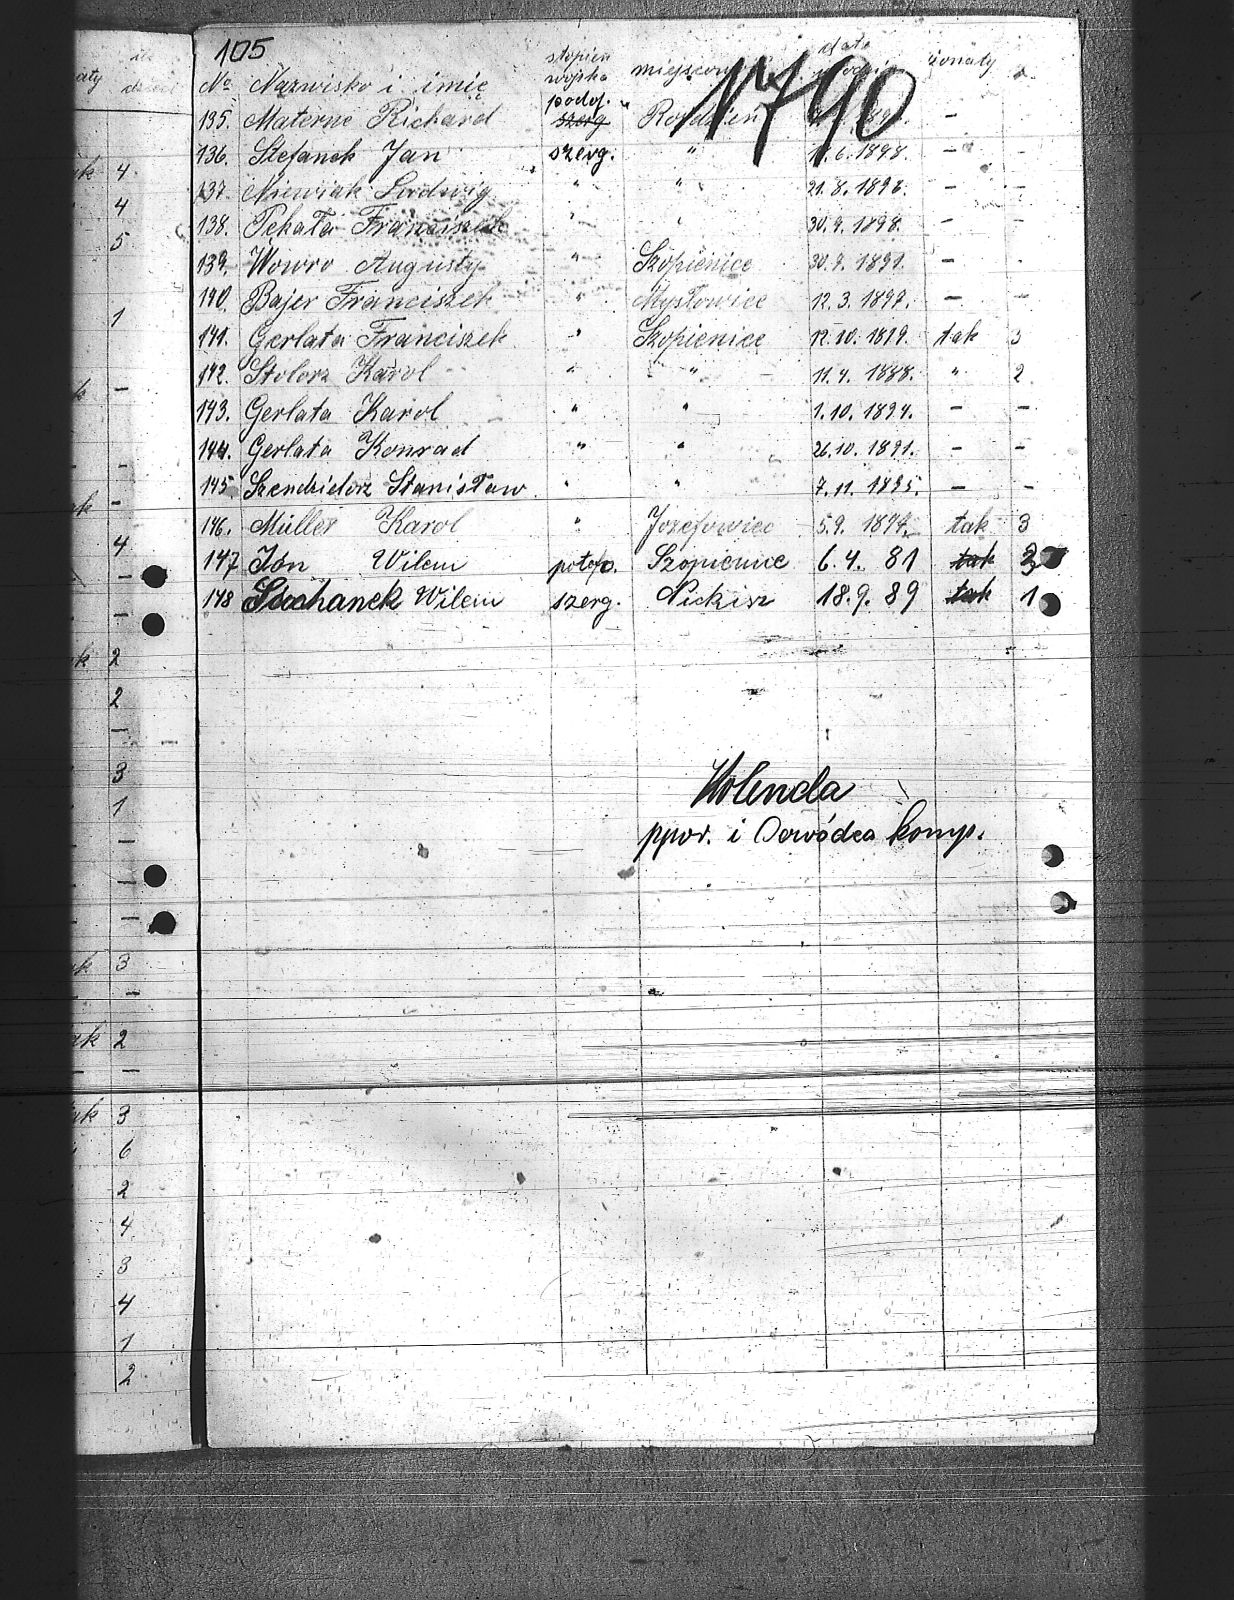 105
1790
№ Nazwisko i imię stopień wojska miejscow data żonaty
135. Materne Richard podof. szerg Rozdzień – –
136. Stefanek Jan szerg. " 6. 1898. – –
137. Niewiak Ludwig " " 21. 8. 1898. – –
138. Pekała Franciszek " " 30. 9. 1898. – –
139. Wowro Augusty " Szopienice 30. 9. 1891. – –
140. Bajer Franciszek " Mysłowice 12. 3. 1897. – –
141. Gerlata Franciszek " Szopienice 12. 10. 1879. tak 3
142. Stolorz Karol " " 11. 4. 1888. " 2
143. Gerlata Karol " " 1. 10. 1894. – –
144. Gerlata Konrad " " 26. 10. 1891. – –
145 Szendzielorz Stanisław " " 7. 11. 1895. – –
146. Müller Karol " Jozefowiec 5 9. 1874. tak 3
147 Jon Wilem Szopienice 6. 4. 81 tak 3
148 Suchanek Wilem szerg. Nickisz 18. 9. 89 tak 1
Kolenda
ppor. i Dowódca komp.
4
4
5
1
–
–
–
4
–
–
2
2
–
3
1
–
–
–
3
–
2
–
3
6
2
4
3
4
1
2